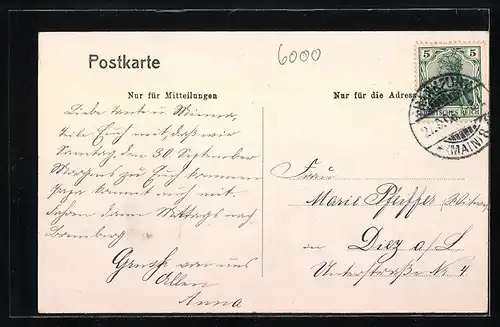 6000
Postkarte
Nur für Mitteilungen
Nur für die Adresse
5 5
DEUTSCHES REICH
(MAIN)
Liebe Tante u. Minna,
teile Euch mit, daß wir
Samstag, den 30. September
Morgens zu Euch kommen
Papa kommt auch mit.
Fahren dann Mittags nach
Bamberg.
Gruß von uns
Allen
Anna
Frau
Marie Pfeiffer
in Diez a/L
Unterstraße № 4